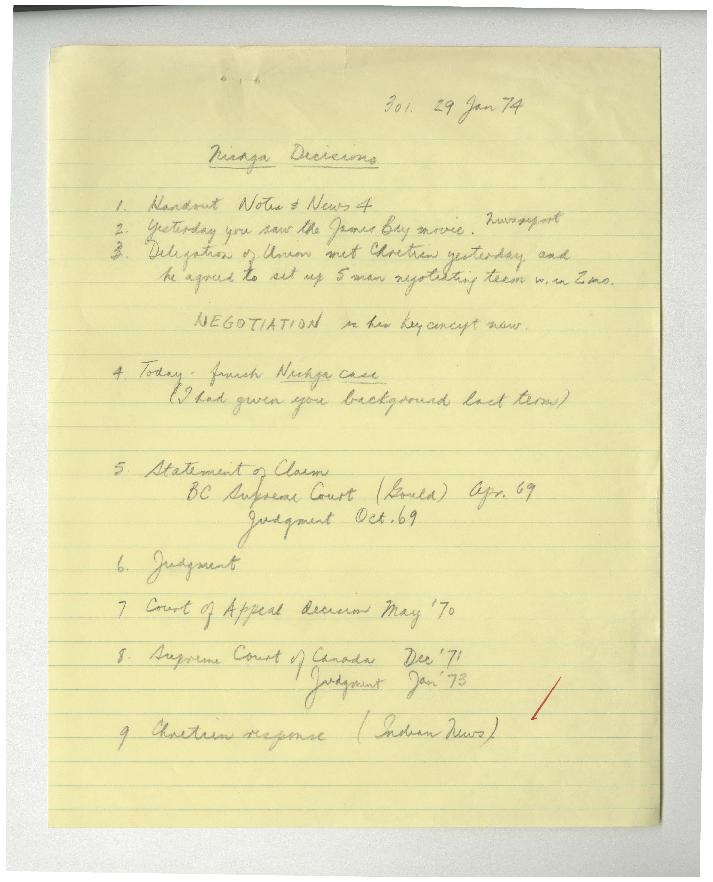 301. 29 Jan 74
Nishga Decisions
1. Handout Notes & News 4
2. Yesterday you saw the James Bay movie. Newsreport
3. Delegation of Union met Chretien yesterday and
he agreed to set up 5 man negotiating team w. in 2 mo.
NEGOTIATION is his key concept now.
4 Today - finish Nishga case
(I had given you background last term)
5. Statement of Claim
BC Supreme Court (Gould) Apr. 69
Judgment Oct. 69
6. Judgment
7 Court of Appeal decision May '70
8. Supreme Court of Canada Dec '71
Judgment Jan '73
9 Chretien response (Indian News)